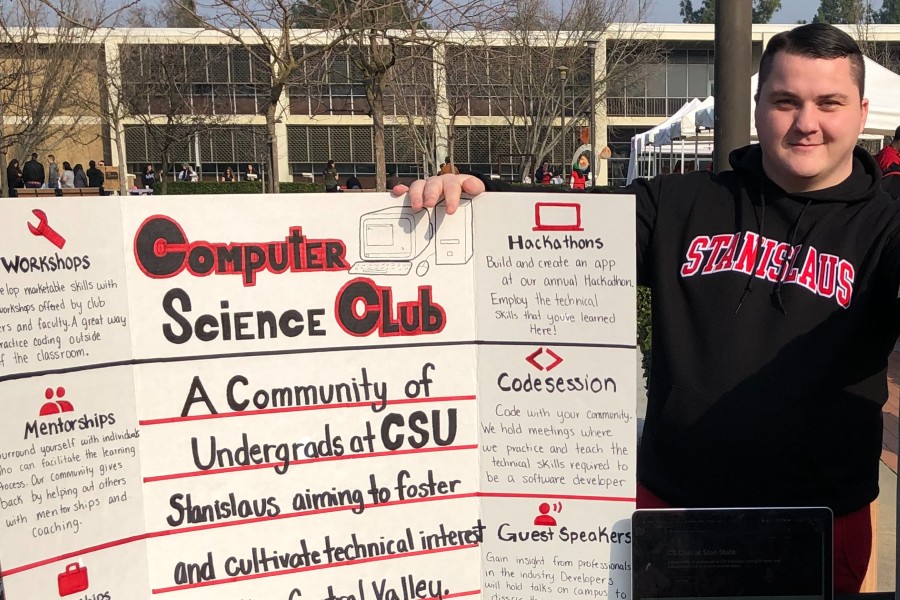 Workshops
marketable skills with
workshops offered by club
and faculty. A great way
practice coding outside
the classroom.
Mentorships
surround yourself with individuals
who can facilitate the learning
process. Our community gives
back by helping out others
with mentorships and
coaching.
Computer
Science Club
A Community of
Undergrads at CSU
Stanislaus aiming to foster
and cultivate technical interest
Central Valley.
Hackathons
Build and create an app
at our annual Hackathon.
Employ the technical
skills that you've learned
Here!
Codesession
Code with your community.
We hold meetings where
we practice and teach the
technical skills required to
be a software developer
Guest Speakers
Gain insight from professionals
in the industry Developers
will hold talks on campus to
STANISLAUS
CS Club at Stan State